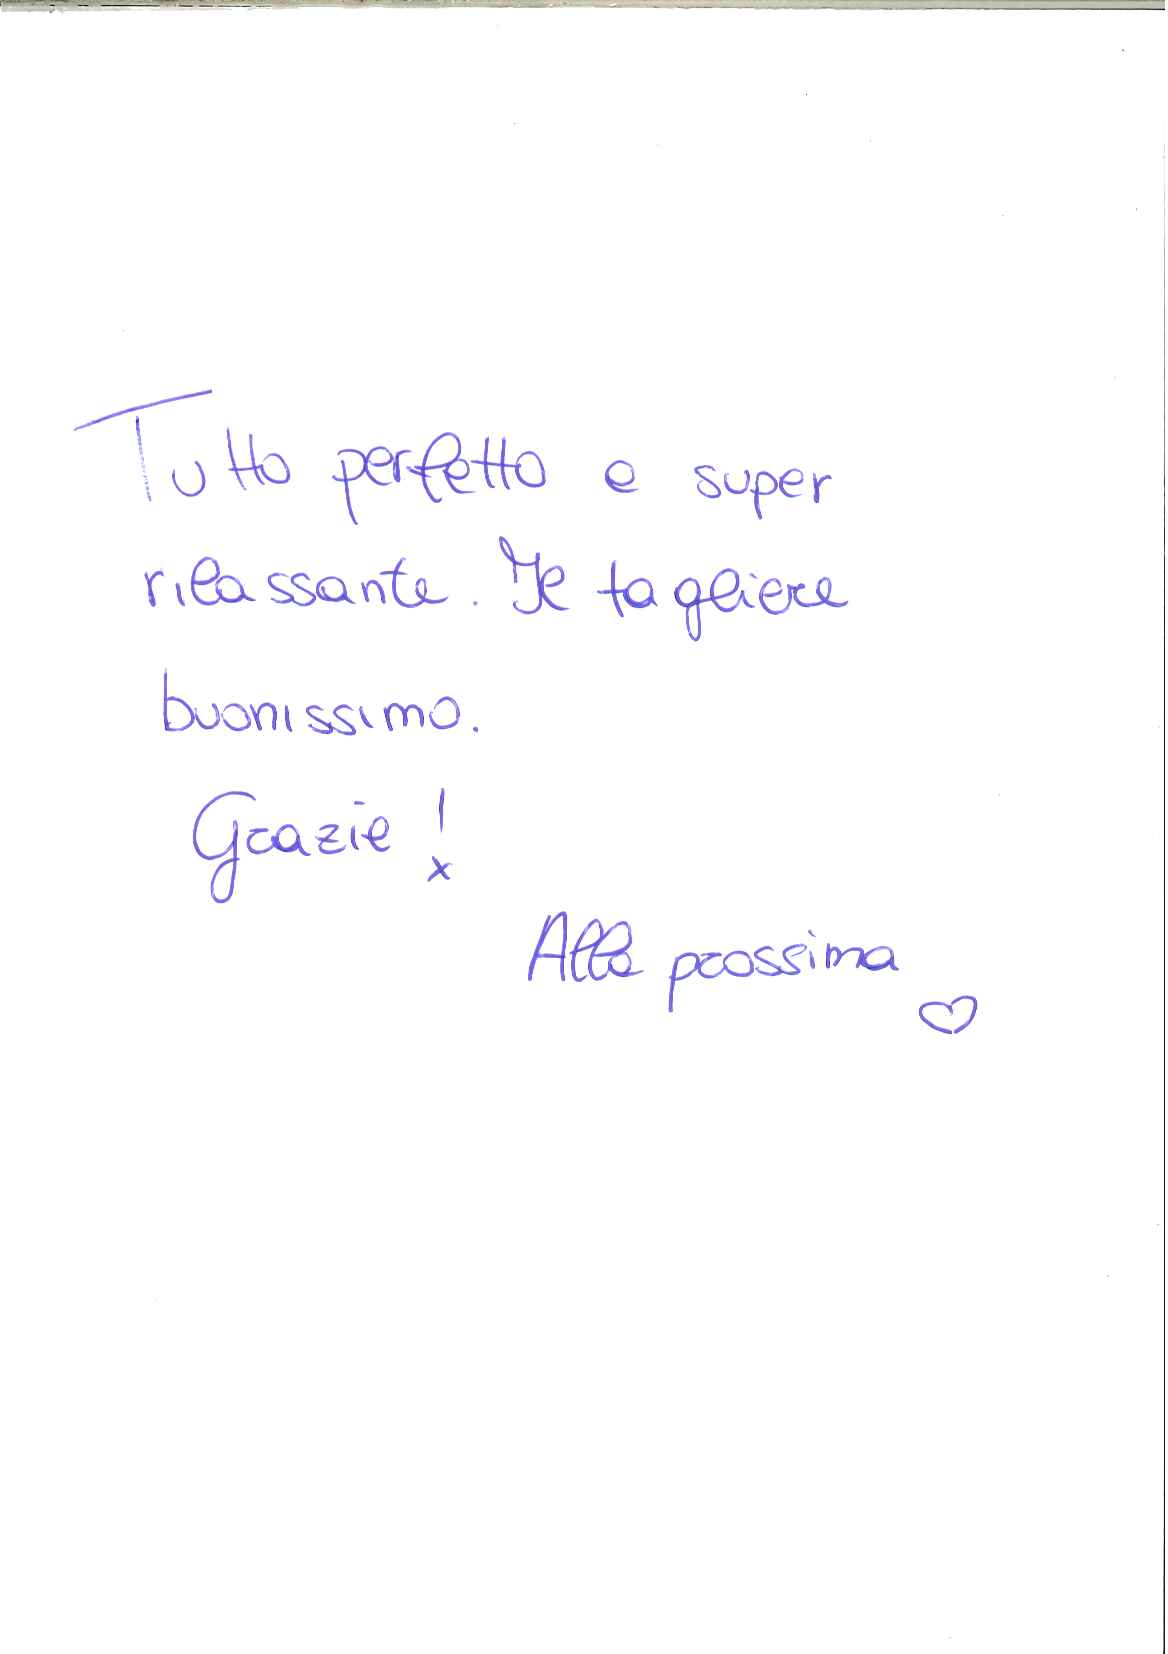 Tutto perfetto e super
rilassante. Il tagliere
buonissimo.
Grazie!
Alla prossima